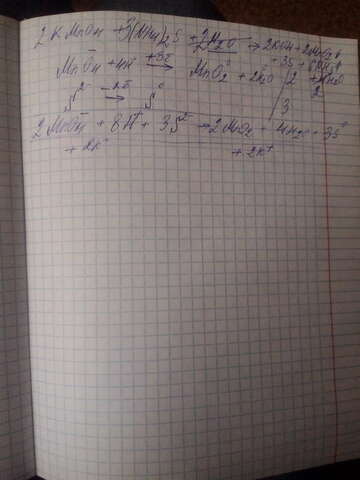 2KMnO4 + 3(NH4)2S + 2H2O → 2KOH + 2MnO2 +
+ 3S + 6NH3
MnO4⁻ + 4H⁺ +3ē → MnO2 + 2H2O | 2
S²⁻ -2ē → S⁰ | 3
2MnO4⁻ + 8H⁺ + 3S²⁻ → 2MnO2 + 4H2O + 3S⁰
+ 2K⁺ + 2K⁺